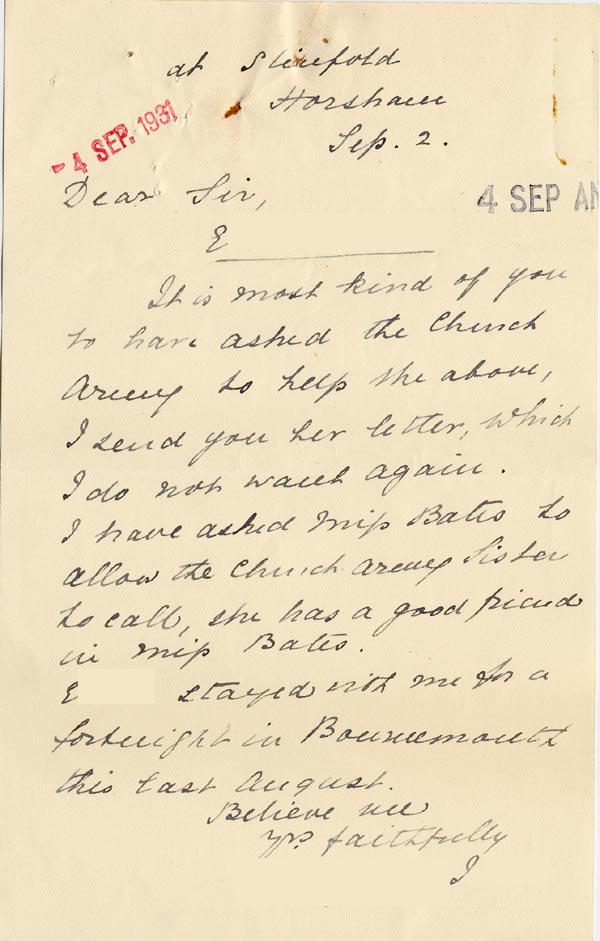 at Slinfold
Horsham
Sep. 2.
-4 SEP. 1931
Dear Sir,
4 SEP AN
E
It is most kind of you
to have asked the Church
Army to help the above,
I send you her letter, which
I do not want again.
I have asked Miss Bates to
allow the Church Army Sister
to call, she has a good friend
in Miss Bates.
E stayed with me for a
fortnight in Bournemouth
this last August.
Believe me
Yrs. faithfully
J